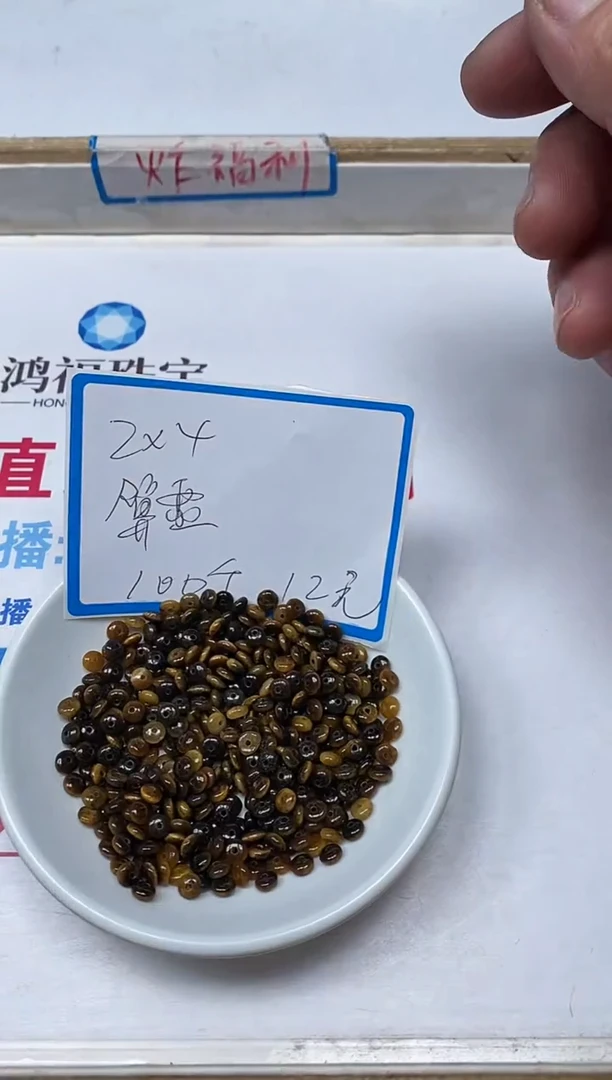 炸福利
鸿福珠宝
HON
2x4
算盘
100个 12元
直
播:
播